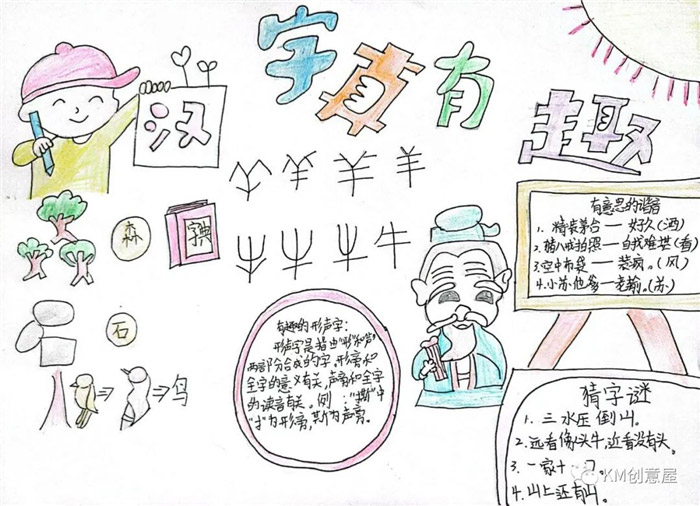 汉字真有趣
羊
牛
森
字典
石
鸟
有意思的谐音
好久(酒)
自找难堪(看)
3.空中布袋——装疯。(风)
有趣的形声字:
形声字是指由"形"和"声"
两部分合成的字,形旁和
全字的意义有关,声旁和全字
的读音有关。例:"撕"中
"扌"为形旁,斯为声旁。
猜字谜
1.三水压倒山。
2.远看像头牛,近看没有头。
3.一家十一口。
4.山上还有山。
KM创意屋